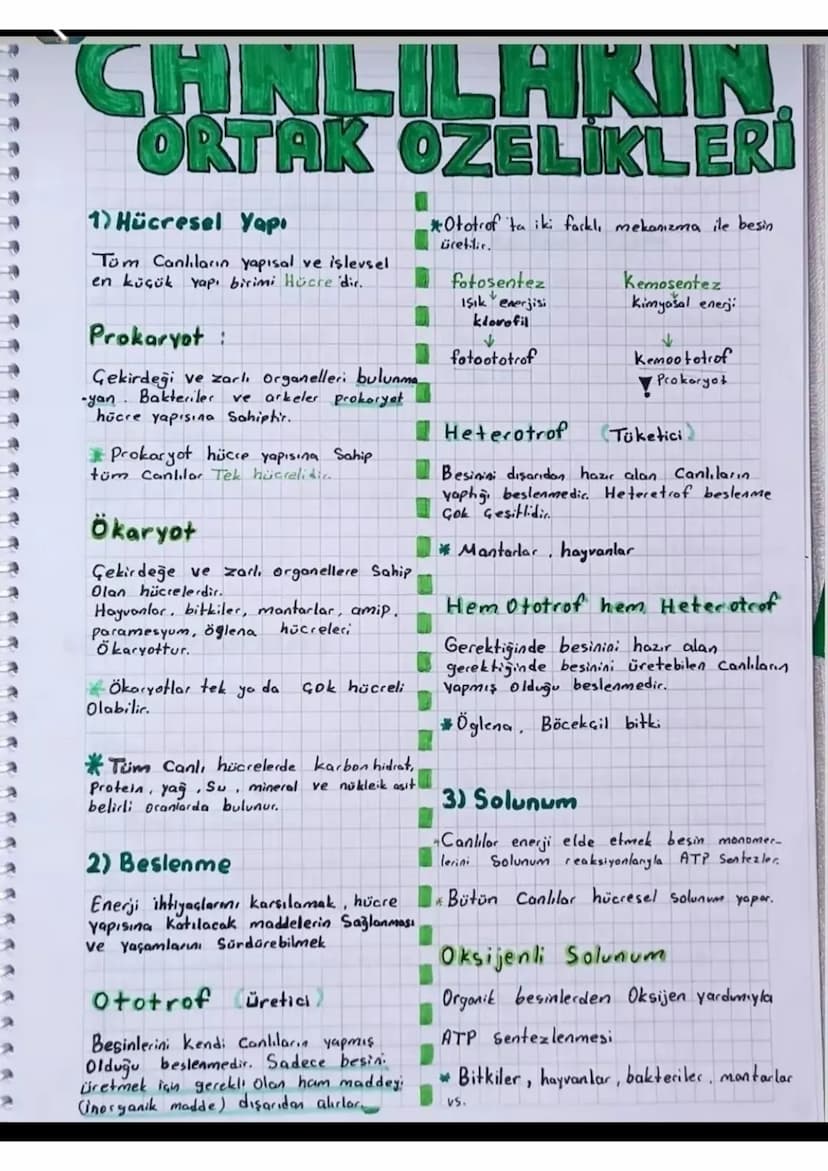 CANLILARIN
ORTAK ÖZELİKLERİ
1) Hücresel Yapı
Tüm Canlıların yapısal ve işlevsel
en küçük yapı birimi Hücre'dir.
Prokaryot :
Çekirdeği ve zarlı organelleri bulunma
-yan. Bakteriler ve arkeler prokaryot
hücre yapısına Sahiptir.
* Prokaryot hücre yapısına Sahip
tüm Canlılar Tek hücrelidir.
Ökaryot
Çekirdeğe ve zarlı organellere Sahip
Olan hücrelerdir.
Hayvanlar, bitkiler, mantarlar, amip,
paramesyum, öglena hücreleri
Ökaryottur.
* Ökaryotlar tek ya da çok hücreli
Olabilir.
* Tüm Canlı hücrelerde karbonhidrat,
Protein, yağ, Su, mineral ve nükleik asit
belirli oranlarda bulunur.
2) Beslenme
Enerji ihtiyaçlarını karşılamak, hücre
yapısına Katılacak maddelerin Sağlanması
ve yaşamlarını Sürdürebilmek
Ototrof (üretici)
Besinlerini Kendi Canlıların yapmış
Olduğu beslenmedir. Sadece besini
üretmek için gerekli olan ham maddeyi
(inorganik madde) dışarıdan alırlar.
*Ototrof'ta iki farklı mekanizma ile besin
üretilir.
fotosentez
Işık enerjisi
klorofil
↓
fotoototrof
Kemosentez
Kimyasal enerji
↓
Kemoototrof
! Prokaryot
Heterotrof (Tüketici)
Besinini dışarıdan hazır alan Canlıların
yaptığı beslenmedir. Heteretrof beslenme
Çok Çeşitlidir.
* Mantarlar, hayvanlar
Hem Ototrof hem Heterotrof
Gerektiğinde besinini hazır alan
gerektiğinde besinini üretebilen Canlıların
yapmış olduğu beslenmedir.
* Öglena, Böcekçil bitki
3) Solunum
*Canlılar enerji elde etmek besin monomer-
lerini Solunum reaksiyonlarıyla ATP Sentezler.
* Bütün Canlılar hücresel solunum yapar.
Oksijenli Solunum
Organik besinlerden Oksijen yardımıyla
ATP Sentezlenmesi
* Bitkiler, hayvanlar, bakteriler, mantarlar
vs.